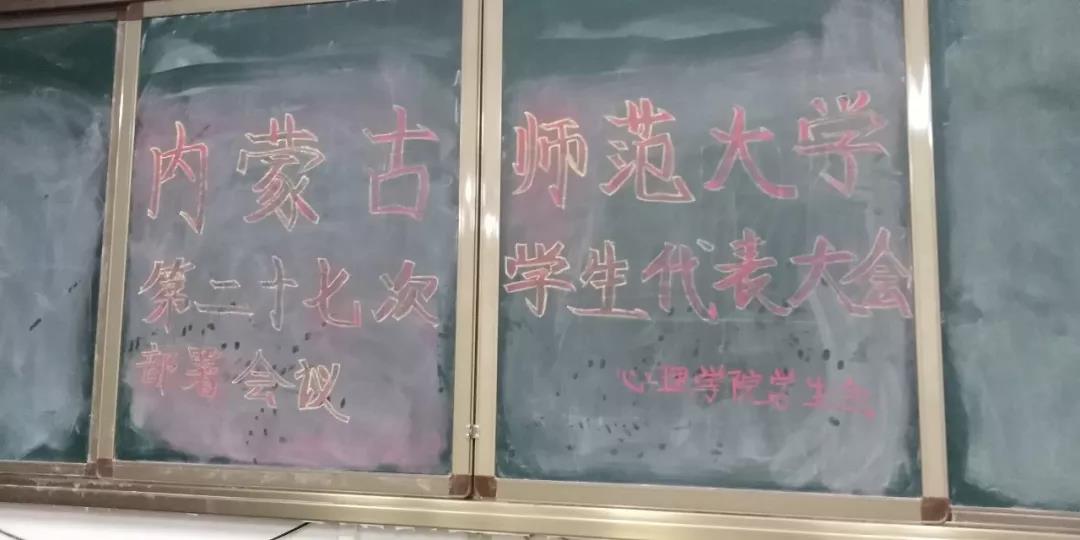 内蒙古师范大学
第二十七次学生代表大会
部署会议
心理学院学生会